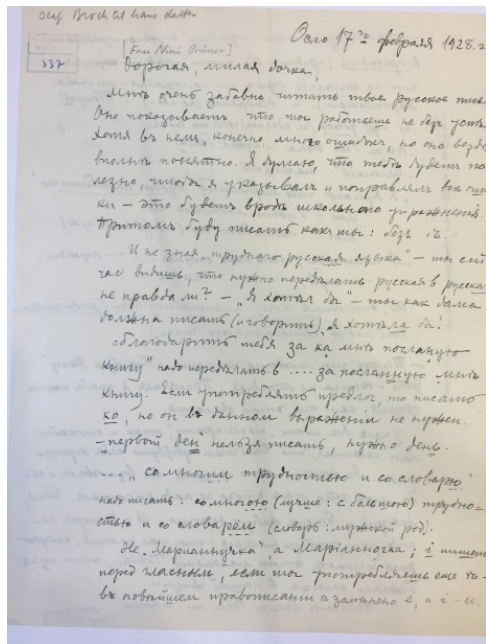 Olaf Broch til hans datter
Осло 17го февраля 1928. г
337
[Fru Nini Grüner]
Дорогая, милая дочка,
Мнѣ очень забавно читать твое русское
Оно показываетъ, что ты работаешь не безъ
Хотя въ немъ, конечно, много ошибокъ, но оно вездѣ
вполнѣ понятно. Я думаю, что тебѣ будетъ по
лезно, чтобы я указывалъ и поправлялъ
ки – это будетъ вродѣ школьного упражненія.
Притомъ буду писать какъ ты: безъ ъ.
„И не зная „труднаго русская языка" – ты сей
час видишь, что нужно передѣлать русская в
не правда ли? – „Я хотѣл бы – ты как дама
должна писать (и говорить) „я хотѣла бы".
„благодарить тебя за ка мнѣ посланую
книгу" надо передѣлать в .... „за посланную мнѣ
книгу. Если употреблять предлог, то писать
ко, но он въ данном выраженіи не нужен.
– „первой ден" нельзя писать, нужно день.
...., „со многим трудностью и со словарю"
надо писать: со многою (лучше: с большою) трудно-
стью и со словарём (словарь: мужской род).
Не „Марианнучка", а Маріанночка; і пишем
перед гласным, если ты употребляешь еще
в новѣйшем правописании ѣ заменено е, а і – и.